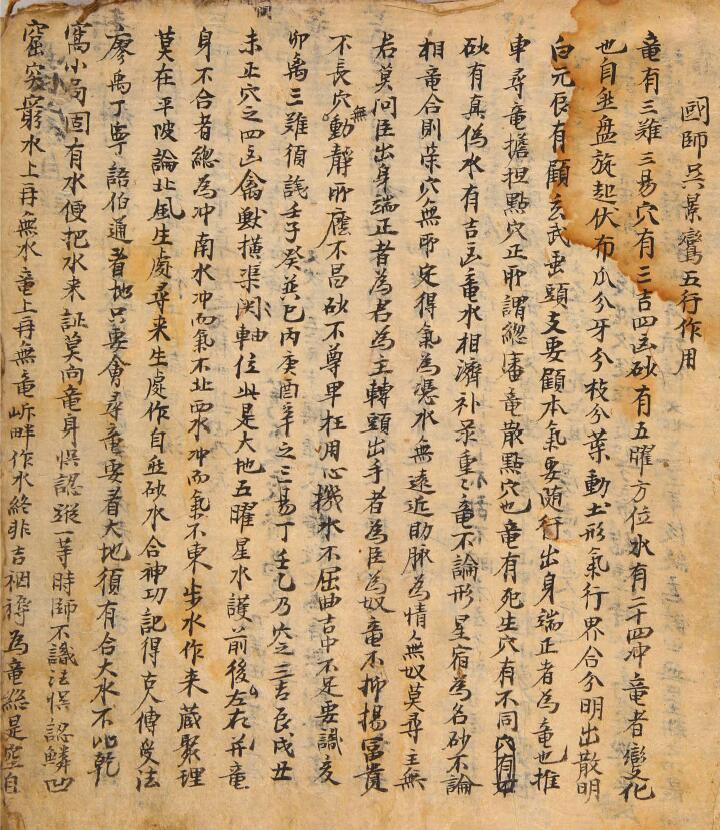 國師吳景鸞五行作用
竜有三難三易穴有三吉四凶砂有五曜方位水有二十四冲竜者變化
也自盤旋起伏布爪分牙分枝分葉動土形氣行界合分明出散明
白元辰有顧玄武垂頭支要顧本氣要随行出身端正者為竜也推
車尋竜擔担點穴正所謂總潘竜散點穴也竜有死生穴有不同
砂有真偽水有吉凶竜水相濟补录重〻竜不論形星宿為名砂不論
相竜合則荣穴無所定得氣為憑水無遠近助脉為情無奴莫尋主無
君莫问臣出身端正者為君為主轉頭出手者為臣為奴竜不抑揚富貴
不長穴無動靜所應不昌砂不尊卑枉用心機水不屈曲吉中不足要識亥
卯禹三難須詵壬子癸其巳丙庚酉辛之三易丁壬乙乃穴之三吉辰戌丑
未正穴之四凶禽獸横渠関軸位此是大地五曜星水護前後左右并竜
身不合者總為冲南水冲而氣不北西水冲而氣不東步水作来蔵聚理
莫在平陂論北風生處尋来生處作自然砂水合神功記得古人傳受法
廖禹丁寧語伯通看地只要會尋竜要看大地須有合大水不比乾
窩小局固有水便把水来証莫向竜身悮認蹤一等時師不識法悮認鱗凹
窟突窮水上再無水竜上再無竜岓畔作水終非吉裀褥為竜総是空自